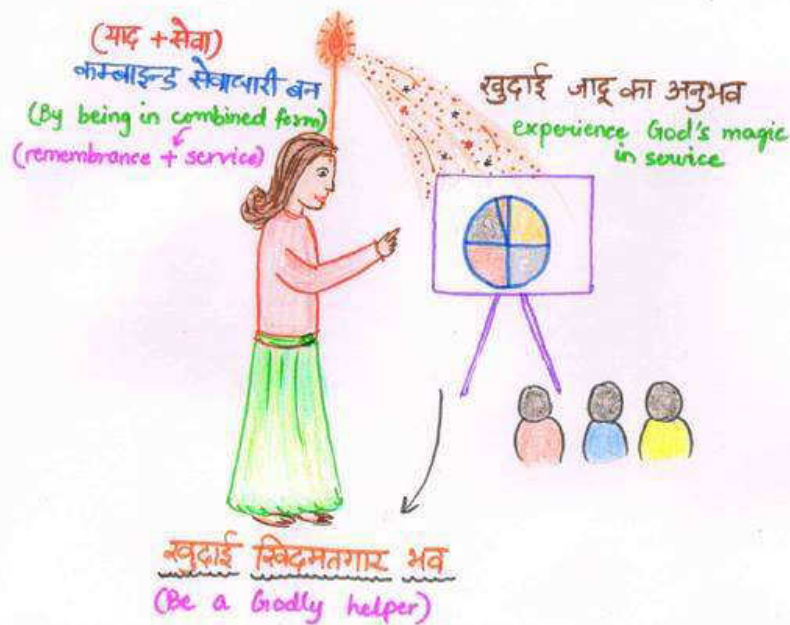 (याद + सेवा)
कम्बाइन्ड सेवाधारी बन
(By being in combined form)
(remembrance + service)
खुदाई जादू का अनुभव
experience God's magic
in service
खुदाई खिदमतगार भव
(Be a Godly helper)